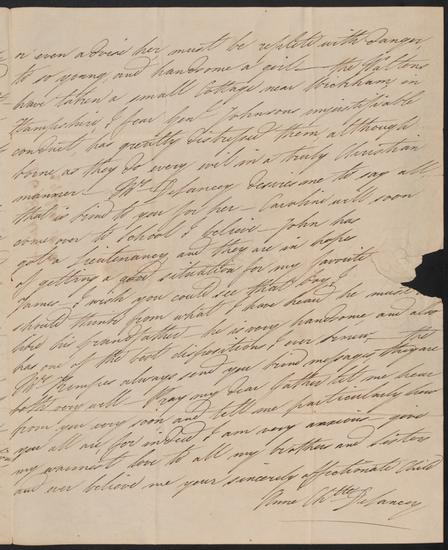 or even advise her must be replete with danger
to so young, and handsome a girl – the Galtons
have taken a small Cottage near Wickham in
Hampshire, I fear Genl Johnsons unjustifiable
conduct has greatly distressed them although
borne as they do every evil in a truly Christian
manner – Mrs DeLancey desires me to say all
that is kind to you for her – Caroline will soon
come over to School I believe – John has
got a Lieutenancy and they are in hopes
of getting a good situation for my favorite
James – I wish you could see that boy, I
should think from what I have heard he must
be like his grandfather he is very handsome and also
has one of the best dispositions I ever knew – the
Mrs Kempes always send you kind messages, they are
both very well – Pray my dear Father let me hear
from you very soon and tell me particularly how
you all are for indeed I am very anxious – give
my warmest love to all my brothers and sisters
and ever believe me your sincerely affectionate Child
Anne Chtte DeLancey